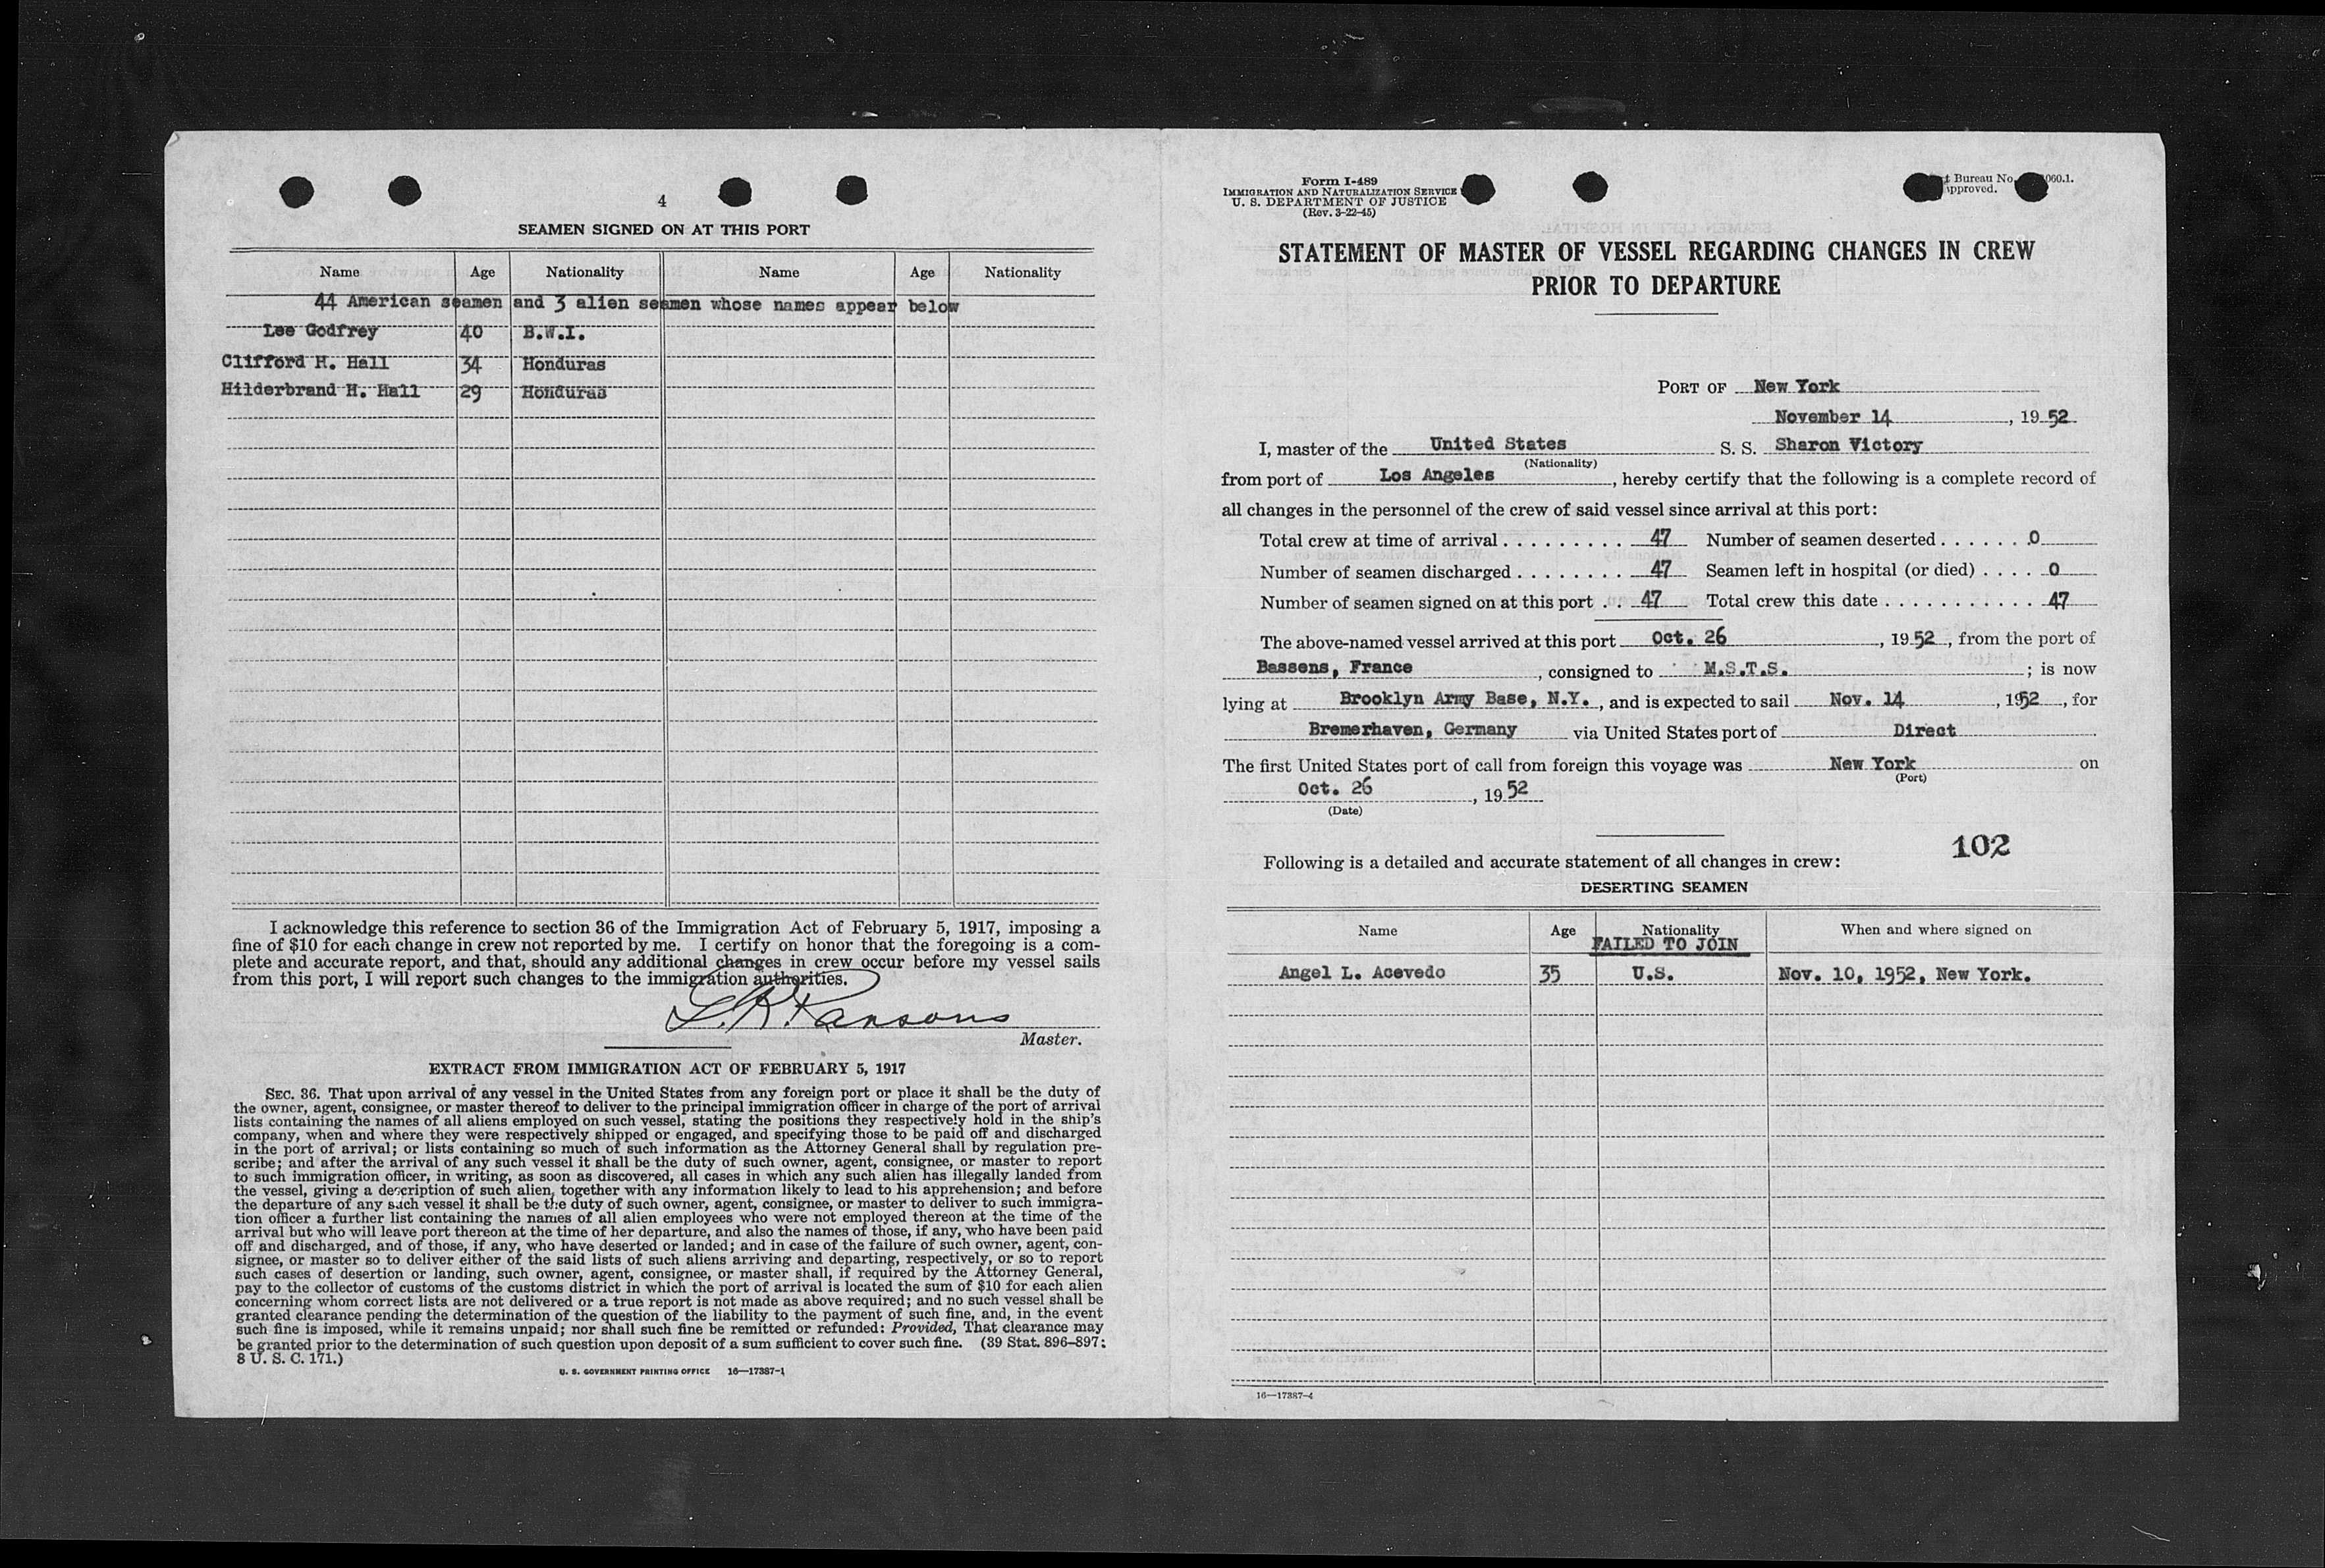 4
SEAMEN SIGNED ON AT THIS PORT
Name Age Nationality Name Age Nationality
44 American seamen and 3 alien seamen whose names appear below
Lee Godfrey 40 B.W.I.
Clifford H. Hall 34 Honduras
Hilderbrand H. Hall 29 Honduras
I acknowledge this reference to section 36 of the Immigration Act of February 5, 1917, imposing a
fine of $10 for each change in crew not reported by me. I certify on honor that the foregoing is a com-
plete and accurate report, and that, should any additional changes in crew occur before my vessel sails
from this port, I will report such changes to the immigration authorities.
L. R. Parsons
Master.
EXTRACT FROM IMMIGRATION ACT OF FEBRUARY 5, 1917
SEC. 36. That upon arrival of any vessel in the United States from any foreign port or place it shall be the duty of
the owner, agent, consignee, or master thereof to deliver to the principal immigration officer in charge of the port of arrival
lists containing the names of all aliens employed on such vessel, stating the positions they respectively hold in the ship's
company, when and where they were respectively shipped or engaged, and specifying those to be paid off and discharged
in the port of arrival; or lists containing so much of such information as the Attorney General shall by regulation pre-
scribe; and after the arrival of any such vessel it shall be the duty of such owner, agent, consignee, or master to report
to such immigration officer, in writing, as soon as discovered, all cases in which any such alien has illegally landed from
the vessel, giving a description of such alien, together with any information likely to lead to his apprehension; and before
the departure of any such vessel it shall be the duty of such owner, agent, consignee, or master to deliver to such immigra-
tion officer a further list containing the names of all alien employees who were not employed thereon at the time of the
arrival but who will leave port thereon at the time of her departure, and also the names of those, if any, who have been paid
off and discharged, and of those, if any, who have deserted or landed; and in case of the failure of such owner, agent, con-
signee, or master so to deliver either of the said lists of such aliens arriving and departing, respectively, or so to report
such cases of desertion or landing, such owner, agent, consignee, or master shall, if required by the Attorney General,
pay to the collector of customs of the customs district in which the port of arrival is located the sum of $10 for each alien
concerning whom correct lists are not delivered or a true report is not made as above required; and no such vessel shall be
granted clearance pending the determination of the question of the liability to the payment of such fine, and, in the event
such fine is imposed, while it remains unpaid; nor shall such fine be remitted or refunded: Provided, That clearance may
be granted prior to the determination of such question upon deposit of a sum sufficient to cover such fine. (39 Stat. 896–897;
8 U. S. C. 171.)
U. S. GOVERNMENT PRINTING OFFICE 16—17387-1
Form I-489
IMMIGRATION AND NATURALIZATION SERVICE
U. S. DEPARTMENT OF JUSTICE
(Rev. 3-22-45)
Bureau No. 060.1.
approved.
STATEMENT OF MASTER OF VESSEL REGARDING CHANGES IN CREW
PRIOR TO DEPARTURE
PORT OF New York
November 14, 1952
I, master of the United States S. S. Sharon Victory
(Nationality)
from port of Los Angeles, hereby certify that the following is a complete record of
all changes in the personnel of the crew of said vessel since arrival at this port:
Total crew at time of arrival . . . . . . . . . . 47 Number of seamen deserted . . . . . . . 0
Number of seamen discharged . . . . . . . . 47 Seamen left in hospital (or died) . . . . 0
Number of seamen signed on at this port . . 47 Total crew this date . . . . . . . . . . . . 47
The above-named vessel arrived at this port Oct. 26, 1952, from the port of
Bassens, France, consigned to M.S.T.S.; is now
lying at Brooklyn Army Base, N.Y., and is expected to sail Nov. 14, 1952, for
Bremerhaven, Germany via United States port of Direct
The first United States port of call from foreign this voyage was New York on
(Port)
Oct. 26, 1952
(Date)
102
Following is a detailed and accurate statement of all changes in crew:
DESERTING SEAMEN
Name Age Nationality When and where signed on
FAILED TO JOIN
Angel L. Acevedo 35 U.S. Nov. 10, 1952, New York.
16—17387-4